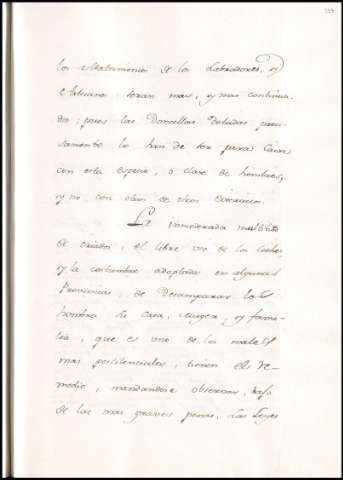 los Matrimonios de los Labradores, y
Artesanos seran mas, y mas continua-
dos; pues las Doncellas Dotadas preci-
samente lo han de ser para Casar
con esta especie, o clase de hombres,
y no con otros de otros exercicios.
La inmoderada multitud
de criados; el libre uso de los Coches,
y la costumbre adoptada en algunas
Provincias, de desamparar los
hombres su casa, muger, y fami-
lia, que es uno de los males
mas pestilenciales, tienen el re-
medio, mandandose observar, bajo
de las mas graves penas, las Leyes